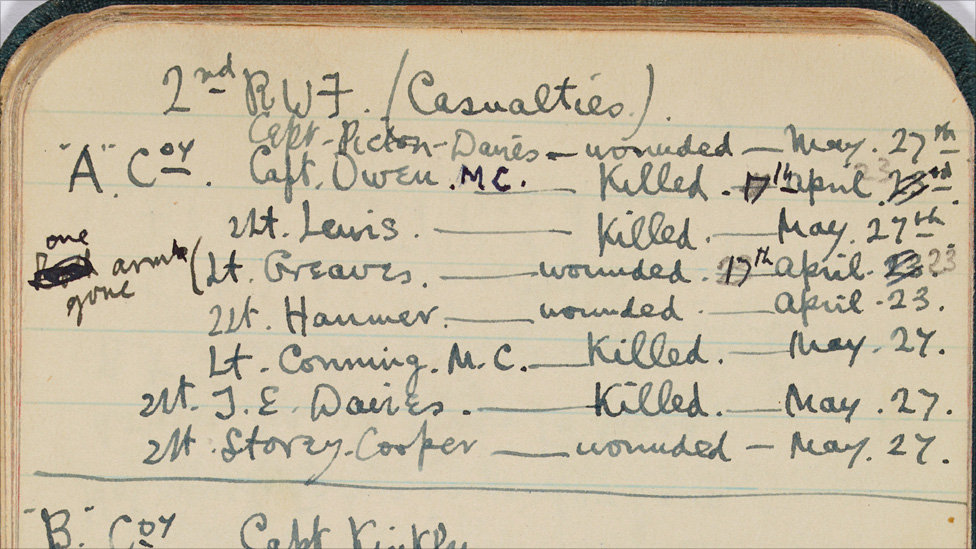 2nd RWF. (Casualties.)
Capt. Picton-Davies — wounded — May. 27th
"A" Coy. Capt. Owen. M.C. — Killed. 17th April. 23rd
2Lt. Lewis. — Killed. — May. 27th.
one arm gone (Lt. Greaves. — wounded. 17th April. 23
2Lt. Hanmer. — wounded. April. 23.
Lt. Conning. M.C. — Killed. — May. 27.
2Lt. T. E. Davies. — Killed. — May. 27.
2Lt. Storey-Cooper — wounded — May. 27.
"B" Coy Capt Kirkby